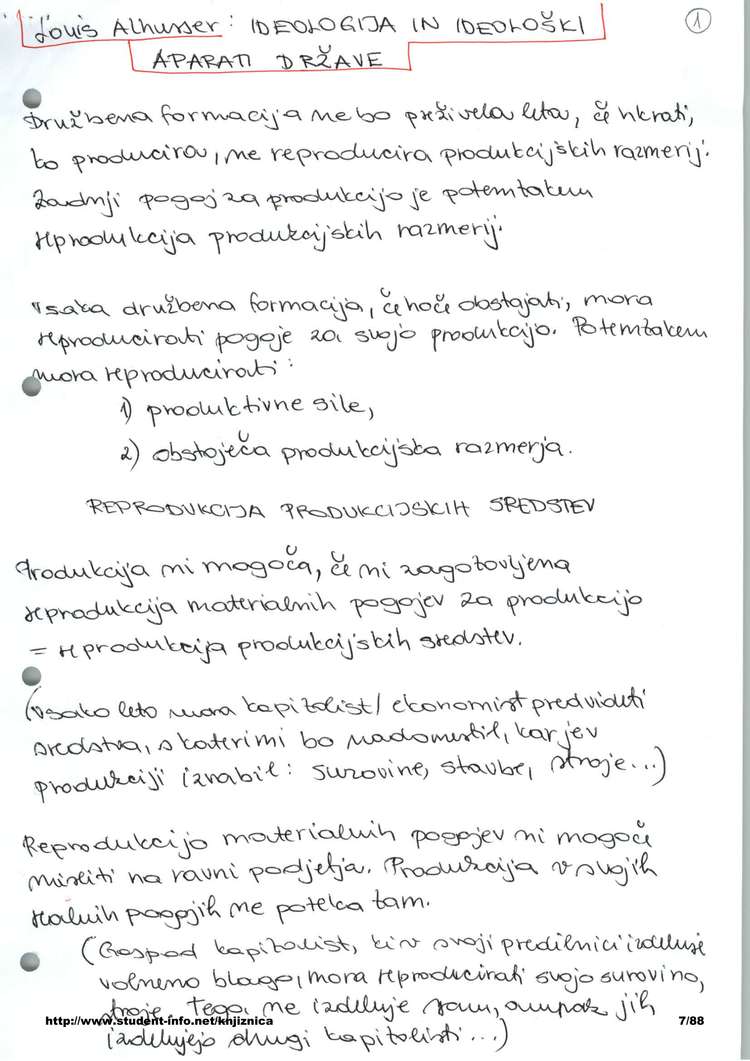 Louis Alhusser: IDEOLOGIJA IN IDEOLOŠKI
1
APARATI DRŽAVE
Družbena formacija ne bo preživela leta, če hkrati,
ko producira, ne reproducira produkcijskih razmerij.
Zadnji pogoj za produkcijo je potemtakem
reprodukcija produkcijskih razmerij.
Vsaka družbena formacija, če hoče obstajati, mora
reproducirati pogoje za svojo produkcijo. Potemtakem
mora reproducirati:
1) produktivne sile,
2) obstoječa produkcijska razmerja.
REPRODUKCIJA PRODUKCIJSKIH SREDSTEV
Produkcija ni mogoča, če ni zagotovljena
reprodukcija materialnih pogojev za produkcijo
= reprodukcija produkcijskih sredstev.
(vsako leto mora kapitalist/ekonomist predvideti
sredstva, s katerimi bo nadomestil, kar je v
produkciji izrabil: surovine, stavbe, stroje...)
Reprodukcijo materialnih pogojev ni mogoče
misliti na ravni podjetja. Produkcija v svojih
realnih pogojih ne poteka tam.
(Gospod kapitalist, ki v svoji predilnici izdeluje
volneno blago, mora reproducirati svojo surovino,
stroje. Tega ne izdeluje sam, ampak jih
http://www.student-info.net/knjiznica 7/88
izdelujejo drugi kapitalisti...)